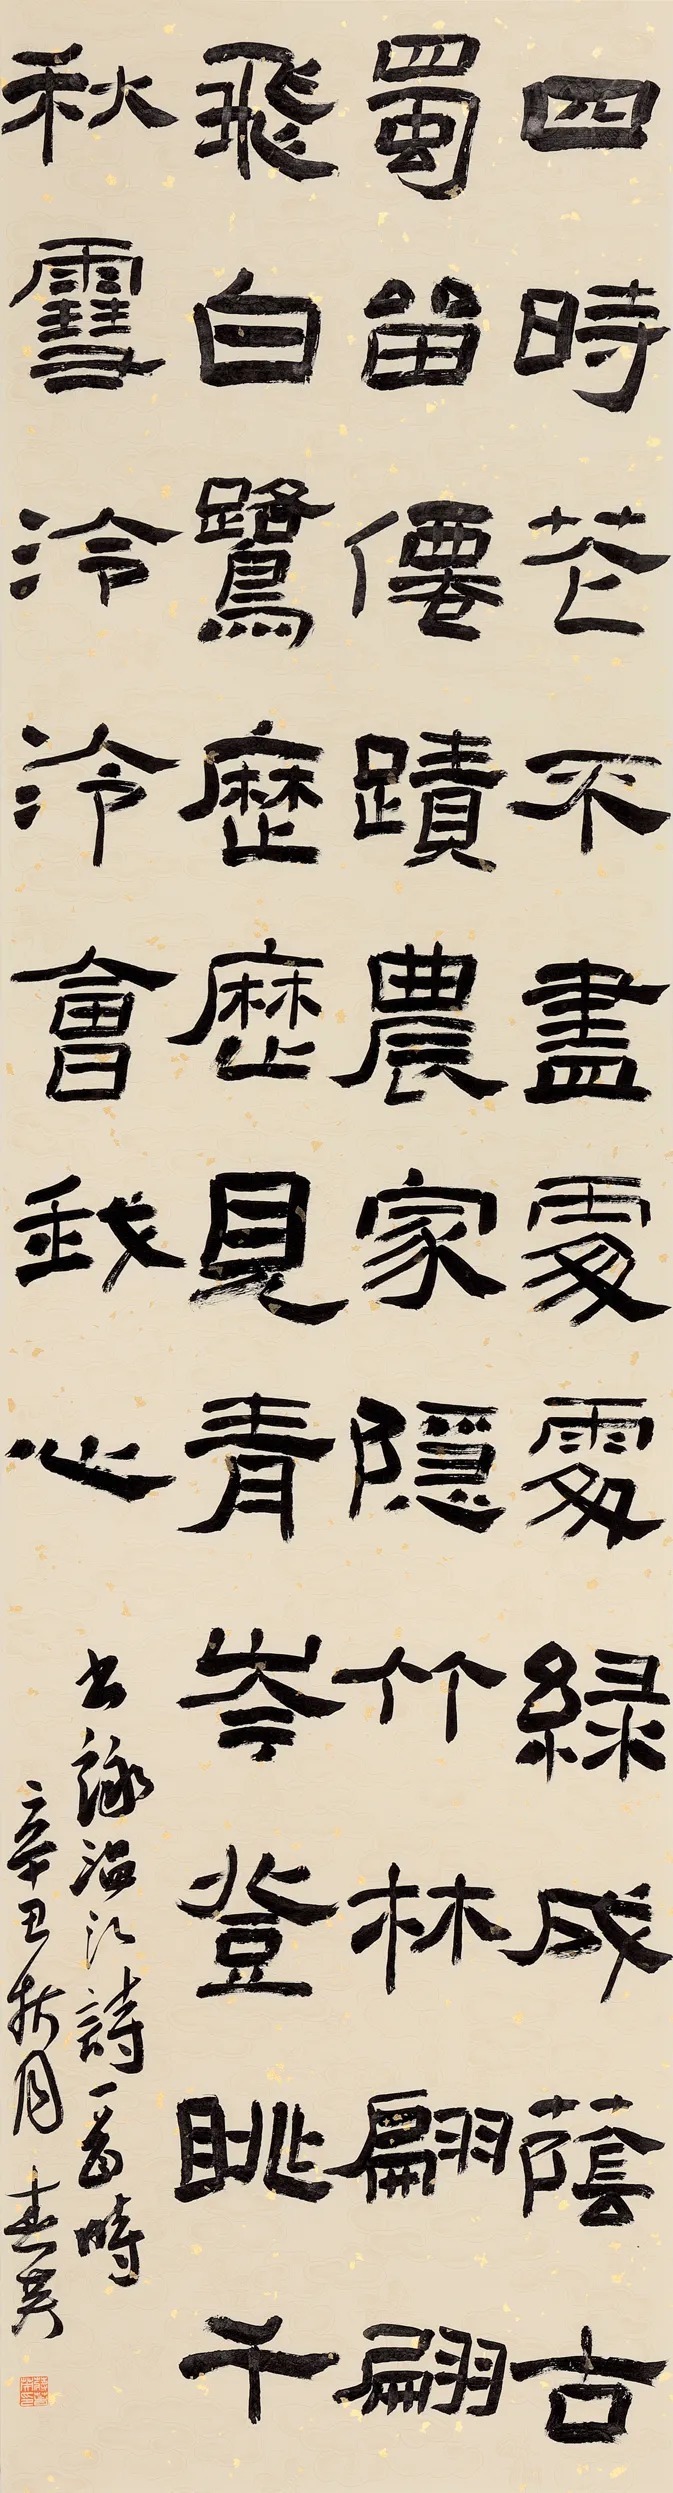 四時花不盡處處綠成蔭古
蜀留僊蹟農家隱竹林翩翩
飛白鷺歷歷見青岑登眺千
秋雪泠泠會我心
書詠溫江詩一首時
辛丑秋月春英